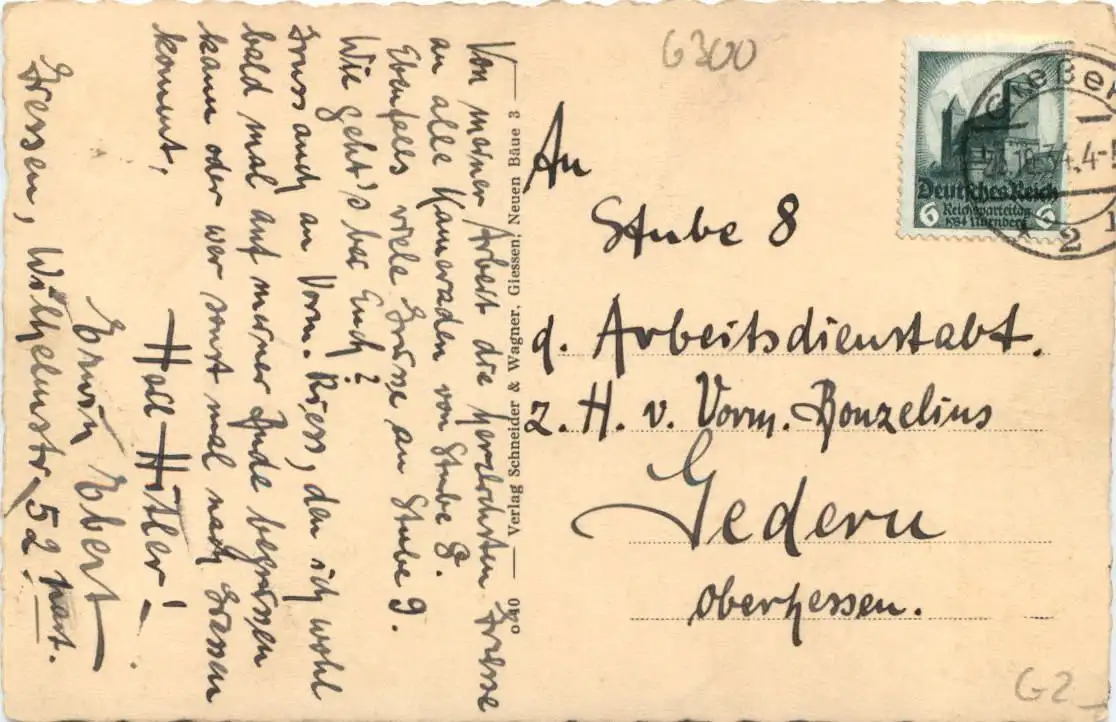 Von meiner Arbeit die herzlichsten Grüsse
an alle Kameraden von Stube 8.
Ebenfalls viele Grüsse an Stube 9.
Wie geht's bei Euch?
Gruss auch an Vorm. Riess, den ich wohl
bald mal auf meiner Bude begrüssen
kann oder wer sonst mal nach Giessen
kommt,
Heil Hitler!
Erwin Ebert
Giessen, Wilhelmstr. 52 part.
o 40 — Verlag Schneider & Wagner, Giessen, Neuen Bäue 3 —
G300
Gießen
34.4-5
2
Deutsches Reich
6 Reichsparteitag 6
1934 Nürnberg
An
Stube 8
d. Arbeitsdienstabt.
z. H. v. Vorm. Bonzelius
Gedern
Oberhessen.
G2